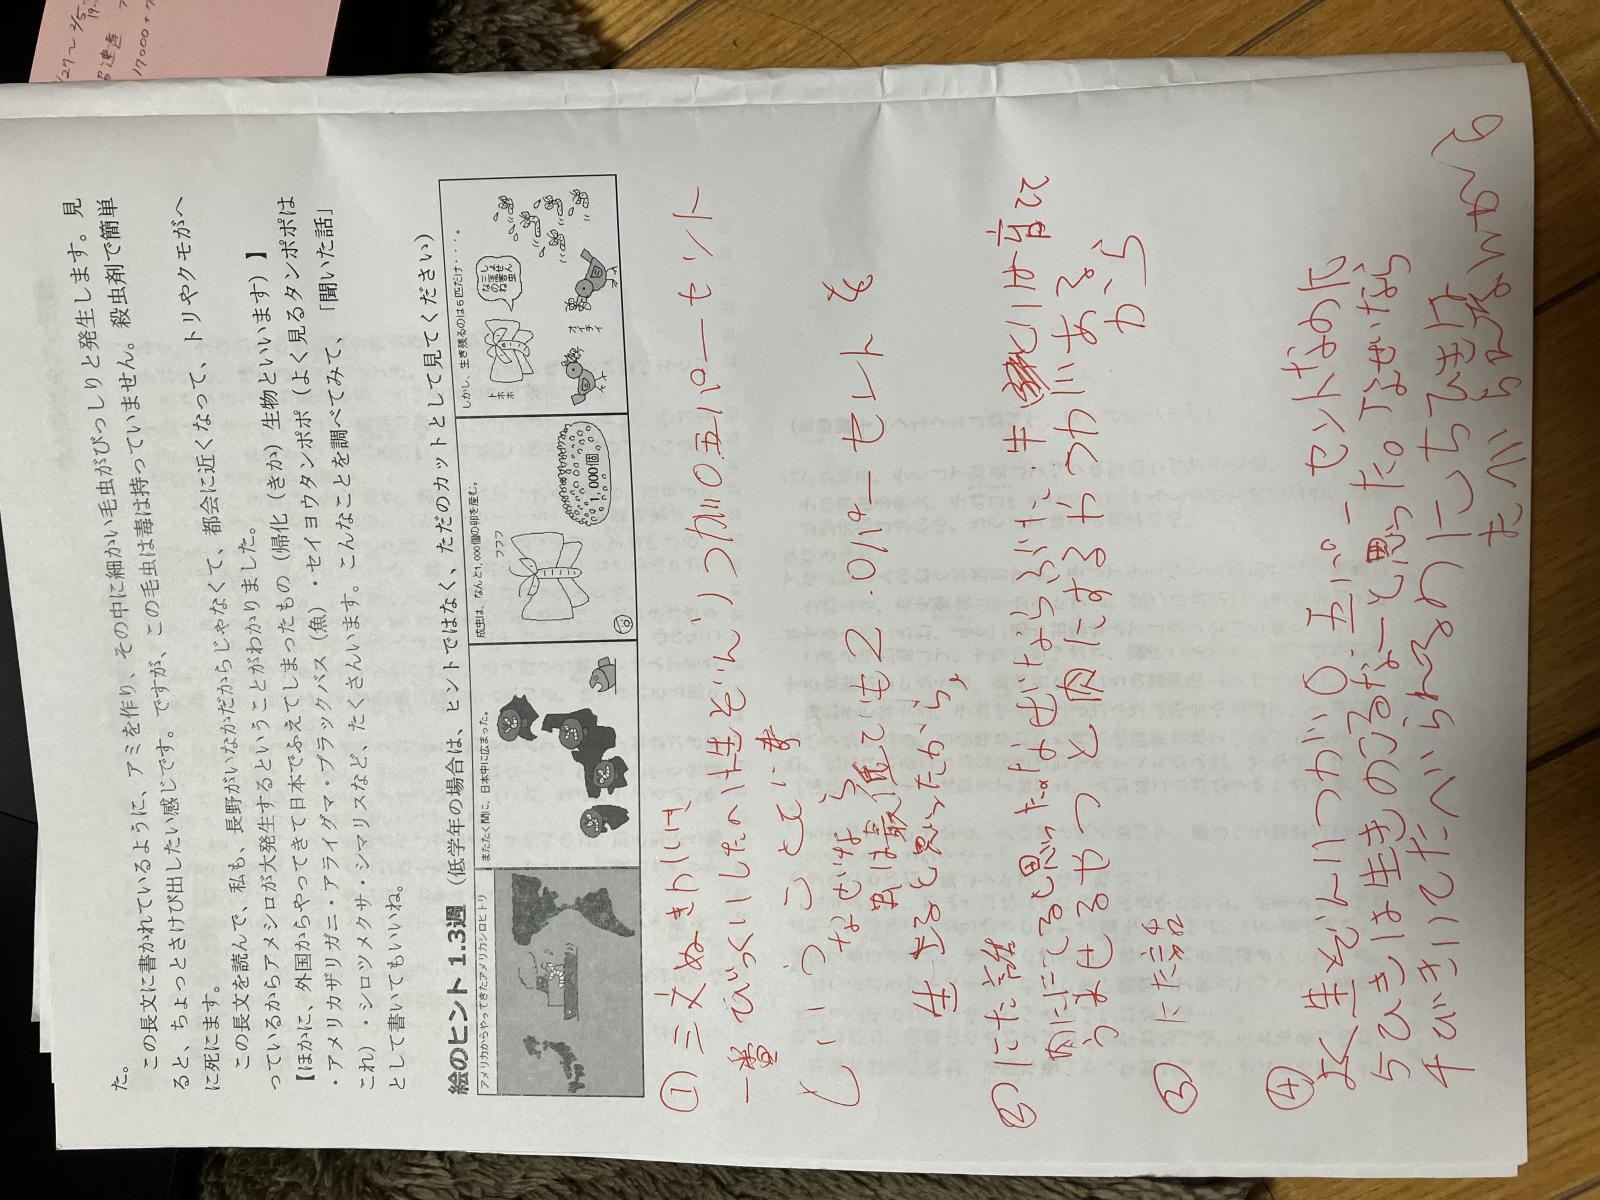 た。
この長文に書かれているように、アミを作り、その中に細かい毛虫がびっしりと発生します。見
ると、ちょっとさけび出したい感じです。ですが、この毛虫は毒は持っていません。殺虫剤で簡単
に死にます。
この長文を読んで、私も、長野がいなかだからじゃなくて、都会に近くなって、トリやクモがへ
っているからアメシロが大発生するということがわかりました。
【ほかに、外国からやってきて日本でふえてしまったもの（帰化（きか）生物といいます）】
・アメリカザリガニ・アライグマ・ブラックバス（魚）・セイヨウタンポポ（よく見るタンポポは
これ）・シロツメクサ・シマリスなど、たくさんいます。こんなことを調べてみて、「聞いた話」
として書いてもいいね。
絵のヒント 1.3週（低学年の場合は、ヒントではなく、ただのカットとして見てください）
アメリカからやってきたアメリカシロヒトリ
またたく間に、日本中に広まった。
成虫は、なんと1,000個の卵を産む。
フフフ
1,000個。
しかし、生き残るのは5匹だけ・・・。
トホホ
オイチイ
① 三文ぬきかけ
一番びっくりしたのは生ぞんりつが〇.五パーセント
ということに。
なぜなら
虫は最低でも2.0パーセントを
生きると思ったから。
② にた話
肉にしてると思った。なぜならぶた、牛とりは育てて
うませるやつと肉にするやつがいあるから
③ にた話
④ よく生ぞんりつが〇.五パーセントなのに
5ひきは生きのこるなーと思った。なぜなら
4ひきい